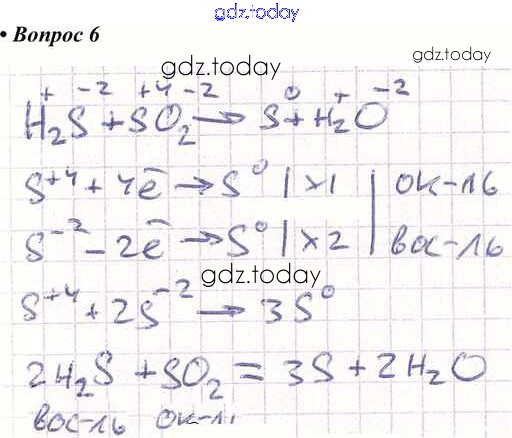 gdz.today
• Вопрос 6
gdz.today
gdz.today
H₂⁺S⁻² + S⁺⁴O₂⁻² → S⁰ + H₂⁺O⁻²
S⁺⁴ + 4ē → S⁰ | ×1 | ок-ль
S⁻² - 2ē → S⁰ | ×2 | вос-ль
gdz.today
S⁺⁴ + 2S⁻² → 3S⁰
2H₂S + SO₂ = 3S + 2H₂O
вос-ль ок-ль